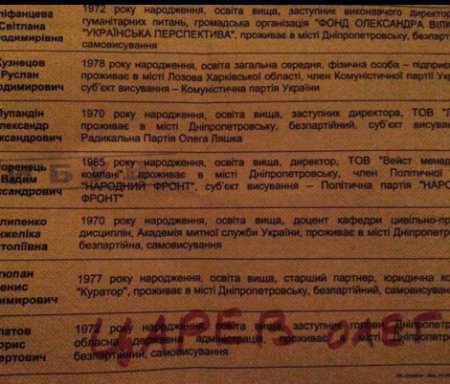 1972 року народження, освіта вища, заступник виконавчого директор
Світлана гуманітарних питань, громадська організація "ФОНД ОЛЕКСАНДРА ВІЛК
"УКРАЇНСЬКА ПЕРСПЕКТИВА", проживає в місті Дніпропетровську, безпарт
самовисування
Кузнецов 1978 року народження, освіта загальна середня, фізична особа – підприє
Руслан проживає в місті Лозова Харківської області, член Комуністичної партії Ук
суб'єкт висування – Комуністична партія України
1970 року народження, освіта вища, заступник директора, ТОВ
проживає в місті Дніпропетровську, безпартійний, суб'єкт висуван
Радикальна Партія Олега Ляшка
1985 року народження, освіта вища, директор, ТОВ "Вейст менед
Вадим компані", проживає в місті Дніпропетровську, член Політичної
"НАРОДНИЙ ФРОНТ", суб'єкт висування – Політична партія "НАР
ФРОНТ"
1970 року народження, освіта вища, доцент кафедри цивільно-пр
дисциплін, Академія митної служби України, проживає в місті Дніпропет
безпартійна, самовисування
1977 року народження, освіта вища, старший партнер, юридична ко
"Куратор", проживає в місті Дніпропетровську, безпартійний, самовисуван
1972 року народження, освіта вища, заступник голови Дніпропет
обласна державна адміністрація, проживає в місті Дніпропетр
безпартійний, самовисування
ЦАРЕВ ОЛЕГ